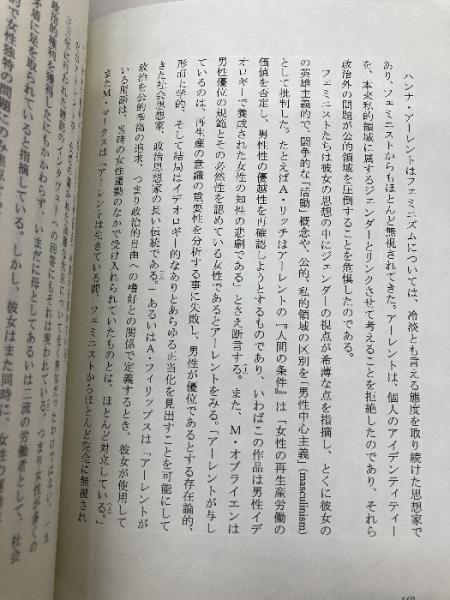 ハンナ・アーレントはフェミニズムについては、冷淡とも言える態度を取り続けた思想家で
あり、フェミニストからもほとんど無視されてきた。アーレントは、個人のアイデンティティー
を、本来私的領域に属するジェンダーとリンクさせて考えることを拒絶したのであり、それら
政治外の問題が公的領域を圧倒することを危惧したのである。
フェミニストたちは彼女の思想の中にジェンダーの視点が希薄な点を指摘し、とくに彼女の
の英雄主義的で、闘争的な「活動」概念や公的、私的領域の区別を「男性中心主義」(masculinism)
として批判した。たとえばA・リッチはアーレントの『人間の条件』は「女性の再生産労働の
価値を否定し、男性性の優越性を再確認しようとするものであり、いわばこの作品は男性イデ
オロギーで養成された女性の知性の悲劇である」とさえ断言する。また、M・オブライエンは
男性優位の規範とその必然性を認めている女性であるとアーレントをみる。「アーレントが与し
ているのは、再生産の意識の重要性を分析する事に失敗し、男性が優位であるとする存在論的、
形而上学的、そして結局はイデオロギー的なありとあらゆる正当化を見出すことを可能にして
きた社会思想家、政治思想家の長い伝統である。」あるいはA・フィリップスは「アーレントが
政治を公的幸福の追求、つまり政治的自由への嗜好との関係で定義するとき、彼女が使用して
いる用語は、当時の女性運動のなかで受け入れられていたものとは、ほとんど対立している。」
またM・マークスは「アーレントは生きている間、フェミニストからほとんど完全に無視され
雑誌のインタヴューへの回答にもそれは現われている。つまり女性が多くの
政治的権利を獲得したにもかかわらず、いまだに母としてあるいは二流の労働者として、社会
矛盾に足を取られていると指摘している。しかし、彼女はまた同時に、女性の運動
で女性独特の問題にのみ焦点